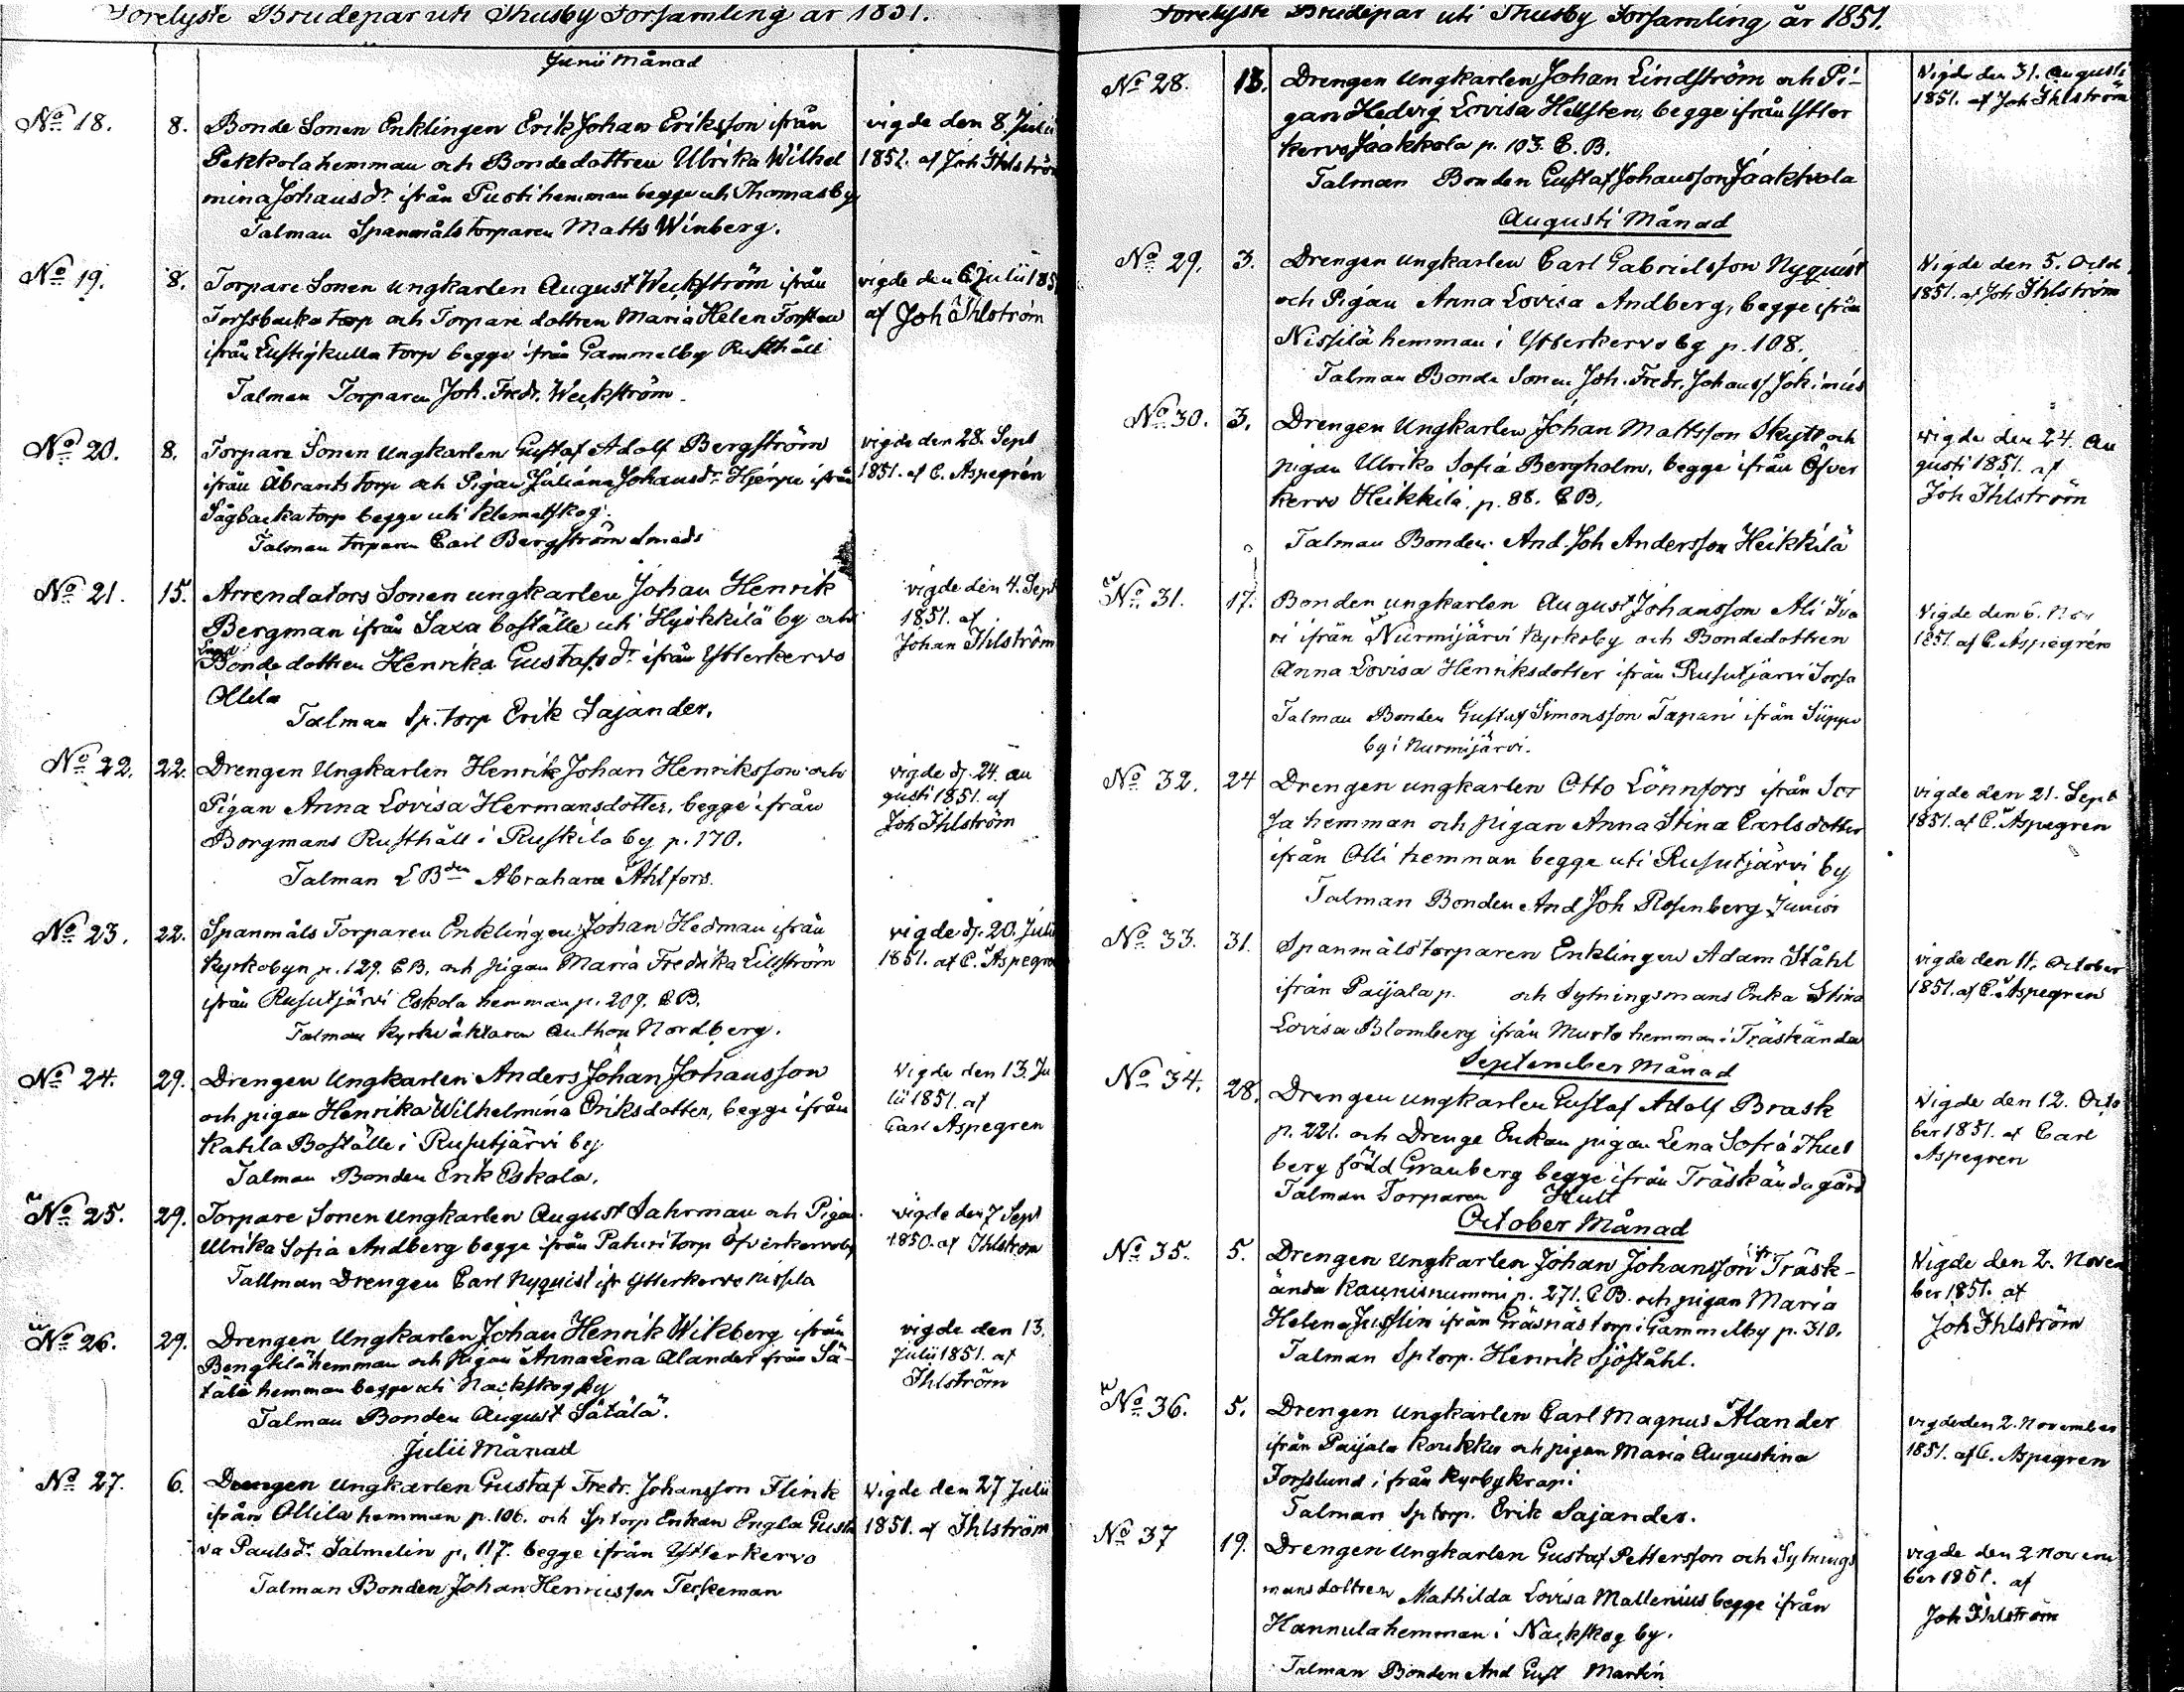 Förelyste Brudepar uti Thusby Församling år 1851.
Junii Månad
No 18. 8. Bonde Sonen Enklingen Erik Johan Eriksson ifrån vigde den 8. Julii
Pekkola hemman och Bondedottren Ulrika Wilhel 1851. af Joh Ihlström
mina Johansdr ifrån Pusti hemman begge uti Thomasby
Talman Spanmåls torparen Matts Winberg.
No 19. 8. Torpare Sonen ungkarlen August Weckström ifrån vigde den 6 Julii 185
Forssbacka torp och Torpare dottren Maria Helen Forsten af Joh Ihlström
ifrån Lustigkulla torp begge ifrån Gammelby Rusthåll
Talman Torparen Joh. Fredr. Weckström.
No 20. 8. Torpare Sonen Ungkarlen Gustaf Adolf Bergström vigde den 28. Sept
ifrån Åbrants torp och Pigan Juliana Johansdr Hjerpe ifrån 1851. af C. Aspegrén
Sågbacka torp begge uti Klemetskog.
Talman torparen Carl Bergström Smeds
No 21. 15. Arrendators Sonen ungkarlen Johan Henrik vigde den 4. Sept
Bergman ifrån Saxa boställe uti Hyökkilä by och 1851. af
Bonde dottren Henrika Gustafsdr ifrån Ytterkervo Johan Ihlström
Ollila
Talman Sp. torp Erik Sajander.
No 22. 22. Drengen Ungkarlen Henrik Johan Henriksson och vigde d. 24. Au
Pigan Anna Lovisa Hermansdotter, begge ifrån gusti 1851. af
Borgmans Rusthåll i Ruskila by p. 170. Joh Ihlström
Talman L Bden Abraham Åhlfors.
No 23. 22. Spanmåls Torparen Enklingen Johan Hedman ifrån vigde d. 20. Julii
Kyrkobyn p. 129. C B. och pigan Maria Fredrika Lillström 1851. af C. Aspegren
ifrån Rusutjärvi Eskola hemman p. 209. C B.
Talman Kyrkväktaren Anthon Nordberg.
No 24. 29. Drengen Ungkarlen Anders Johan Johansson Vigde den 13. Ju
och pigan Henrika Wilhelmina Eriksdotter, begge ifrån lii 1851. af
Katila Boställe i Rusutjärvi by Carl Aspegren
Talman Bonden Erik Eskola.
No 25. 29. Torpare Sonen Ungkarlen August Sahrman och Pigan vigde den 7 Sept
Ulrika Sofia Andberg begge ifrån Paturi torp Öfverkervoby 1850. af Ihlström
Tallman Drengen Carl Nyquist ifr Ytterkervo Nissila
No 26. 29. Drengen Ungkarlen Johan Henrik Wikberg ifrån vigde den 13.
Bengtilä hemman och Pigan Anna Lena Alander ifrån Sä- Julii 1851. af
tälä hemman begge uti Nackskog by Ihlström
Talman Bonden August Sätälä.
Julii Månad
No 27. 6. Drengen Ungkarlen Gustaf Fredr. Johansson Flink Vigde den 27 Julii
ifrån Ollila hemman p. 106. och Sp torp Enkan Engla Gusta 1851. af Ihlström
va Paulsdr Salmelin p. 117. begge ifrån Ytterkervo
Talman Bonden Johan Henricsson Terkeman
Förelyste Brudepar uti Thusby Församling år 1851.
No 28. 13. Drengen Ungkarlen Johan Lindström och Pi- Vigde den 31. Augusti
gan Hedvig Lovisa Hellsten, begge ifrån Ytter 1851. af Joh Ihlström
kervo Jaakkola p. 103. C. B.
Talman Bonden Gustaf Johansson Jaakkola
Augusti Månad
No 29. 3. Drengen ungkarlen Carl Gabrielsson Nyquist Vigde den 5. Octob
och Pigan Anna Lovisa Andberg, begge ifrån 1851. af Joh Ihlström
Nissilä hemman i Ytterkervo by p. 108.
Talman Bonde Sonen Joh. Fredr. Johanss Jokinies
No 30. 3. Drengen Ungkarlen Johan Mattsson Skytt och vigde den 24. Au
pigan Ulrika Sofia Bergholm, begge ifrån Öfver gusti 1851. af
kervo Heikkilä p. 88. C B. Joh Ihlström
Talman Bonden And. Joh Andersson Heikkilä
No 31. 17. Bonden ungkarlen August Johansson Ali Iva Vigde den 6. Nov
ri ifrån Nurmijärvi Kyrkoby och Bondedottren 1851. af C. Aspegrén
Anna Lovisa Henriksdotter ifrån Rusutjärvi Sorsa
Talman Bonden Gustaf Simonsson Tapani ifrån Siippo
by i Nurmijärvi.
No 32. 24 Drengen ungkarlen Otto Lönnfors ifrån Sor vigde den 21. Sept
sa hemman och pigan Anna Stina Carlsdotter 1851. af C. Aspegren
ifrån Olli hemman begge uti Rusutjärvi by
Talman Bonden And Joh Rosenberg Junior
No 33. 31. Spanmålstorparen Enklingen Adam Ståhl vigde den 11. October
ifrån Paijala p. och Sytningsmans Enka Stina 1851. af C. Aspegren
Lovisa Blomberg ifrån Murto hemman i Träskända
September Månad
No 34. 28. Drengen ungkarlen Gustaf Adolf Brask Vigde den 12. Octo
p. 221. och Drenge Enkan pigan Lena Sofia Thel ber 1851. af Carl
berg född Granberg begge ifrån Träskända gård Aspegren
Talman Torparen Hult
October Månad
No 35. 5. Drengen Ungkarlen Johan Johansson ifr Träsk- Vigde den 2. Novem
ända Kaunisnummi p. 271. C B. och pigan Maria ber 1851. af
Helena Justlin ifrån Gräsnäs torp i Gammelby p. 310. Joh Ihlström
Talman Sp torp. Henrik Sjöståhl.
No 36. 5. Drengen Ungkarlen Carl Magnus Ålander vigde den 2. November
ifrån Paijala Koukku och pigan Maria Augustina 1851. af C. Aspegren
Forsslund ifrån Kyrbykrapi
Talman Sp torp. Erik Sajander.
No 37 19. Drengen Ungkarlen Gustaf Pettersson och Sytnings vigde den 2 Novem
mans dottren Mathilda Lovisa Mallenius begge ifrån ber 1851. af
Hannula hemman i Nackskog by. Joh Ihlström
Talman Bonden And Gust Martin